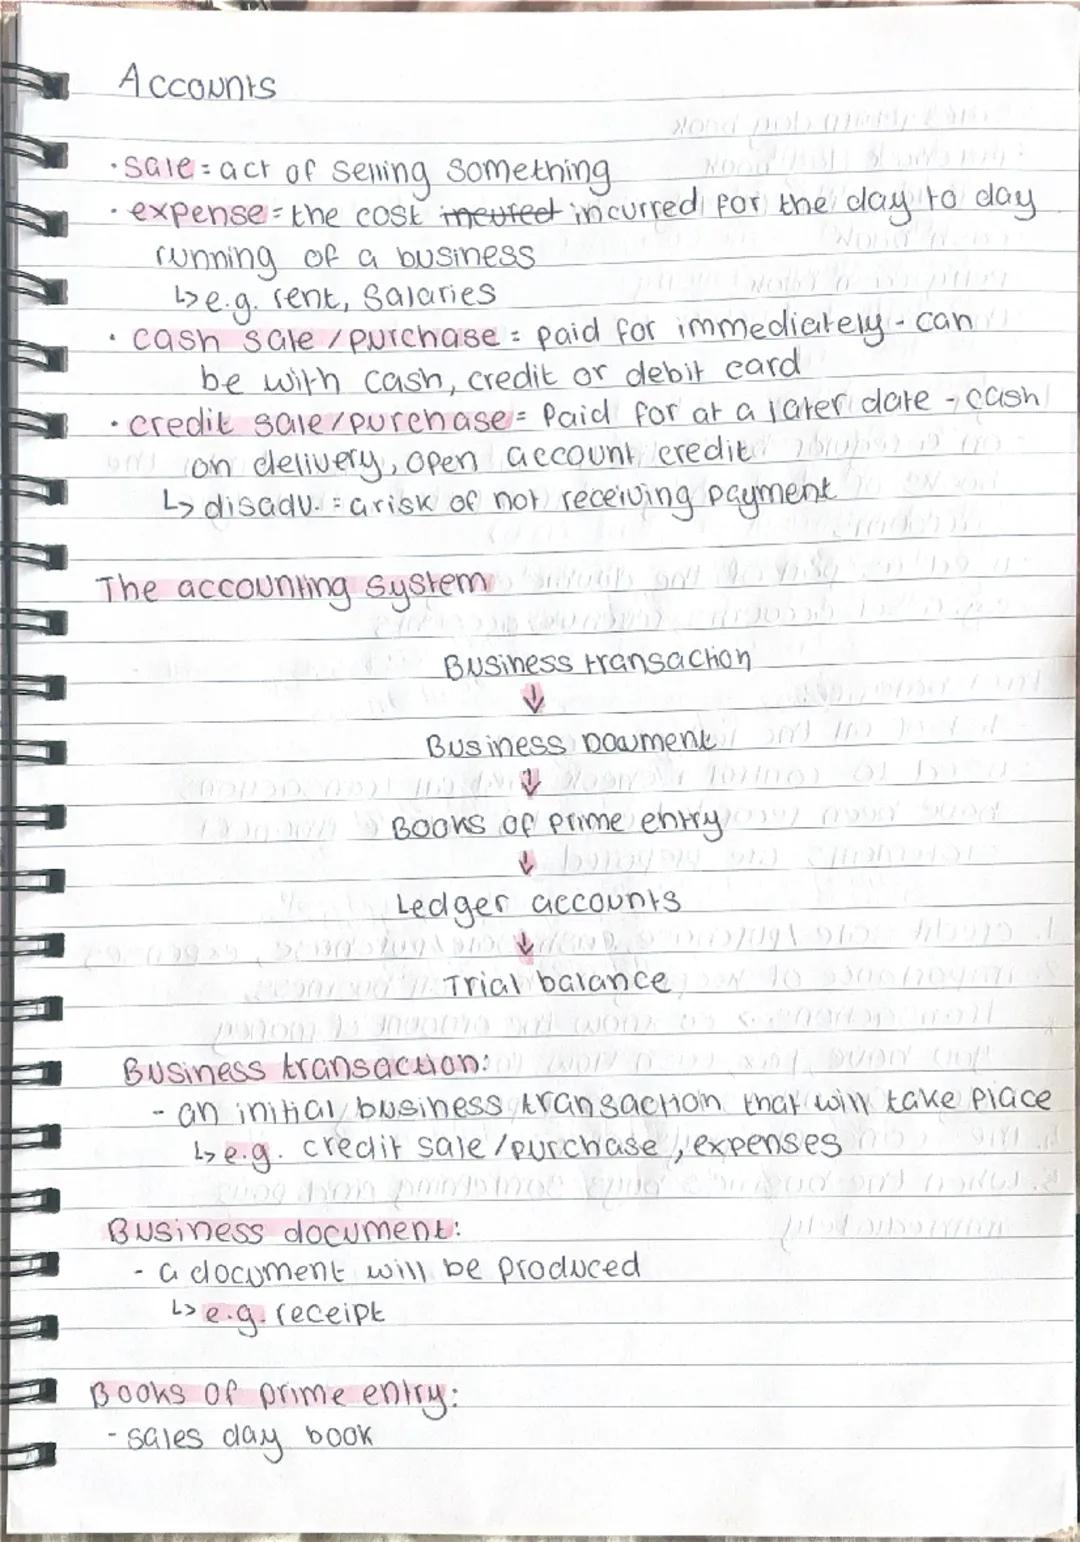 Accounts
· sale = act of selling something
· expense = the cost incured incurred for the day to day
running of a business
↳ e.g. rent, salaries
· cash sale / purchase = paid for immediately - can
be with cash, credit or debit card
· credit sale / purchase = Paid for at a later date - cash
on delivery, open account credit
↳ disadv. = a risk of not receiving payment
The accounting system
Business transaction
↓
Business Document
↓
Books of prime entry
↓
Ledger accounts
↓
Trial balance
Business transaction:
- an initial business transaction that will take place
↳ e.g. credit sale / purchase, expenses
Business document:
- a document will be produced
↳ e.g. receipt
Books of prime entry:
- sales day book